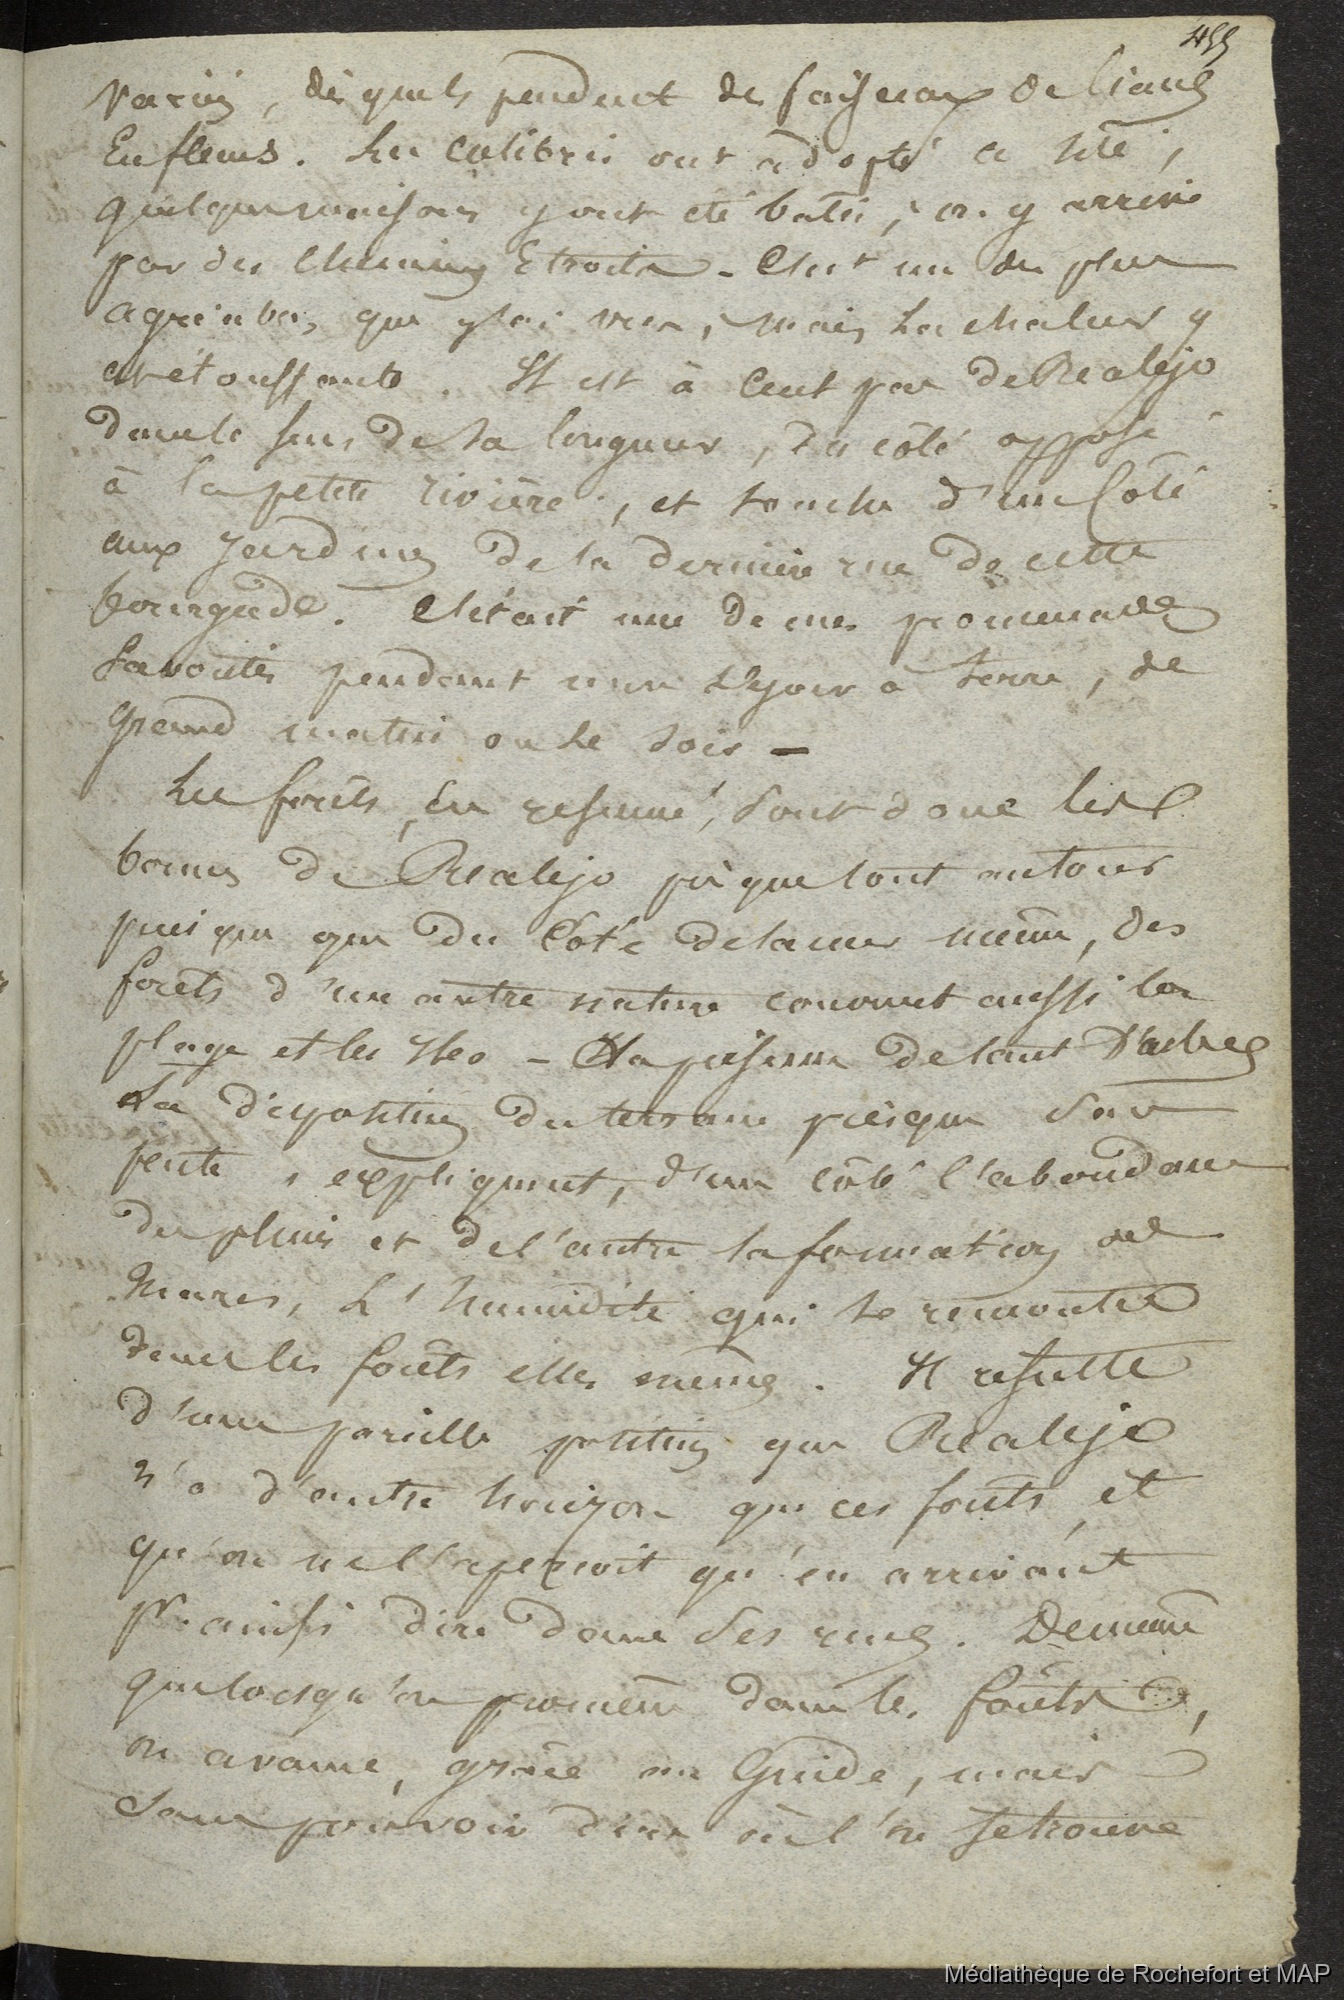 455
variés, desquels pendent des faisceaux de lianes
en fleurs. Les colibris ont adopté ce site,
quelques maisons y ont été baties, on y arrive
par des chemins etroits - C'est un des plus
agréables que j'ai vus, mais la chaleur y
est étouffante. Il est à cent pas de Realejo
dans le sens de sa longueur, du côté opposé
à la petite rivière, et touche d'un coté
aux jardins de la dernière rue de cette
bourgade. C'était une de mes promenades
favorites pendant mon sejour à terre, de
grand matin ou le soir -
Les forêts, en resumé, sont donc les
bornes de Realejo presque tout autour
puisque que du coté de la mer même, des
forêts d'une autre nature couvrent aussi la
plage et les iles - La présence de tant d'arbres
La disposition du terrain presque sans
pente, expliquent, d'un côté l'abondance
des pluies et de l'autre la formation des
mares, L'humidité qui se rencontre
dans les forêts elles mêmes. Il resulte
d'une pareille position que Realejo
n'a d'autre horizon que ces forêts, et
qu'on ne l'aperçoit qu'en arrivant
pr. ainsi dire dans ses rues. De même
que lorsqu'on promène dans les forêts,
on avance, grâce au Guide, mais
sans pouvoir dire où l'on se trouve
Médiathèque de Rochefort et MAP